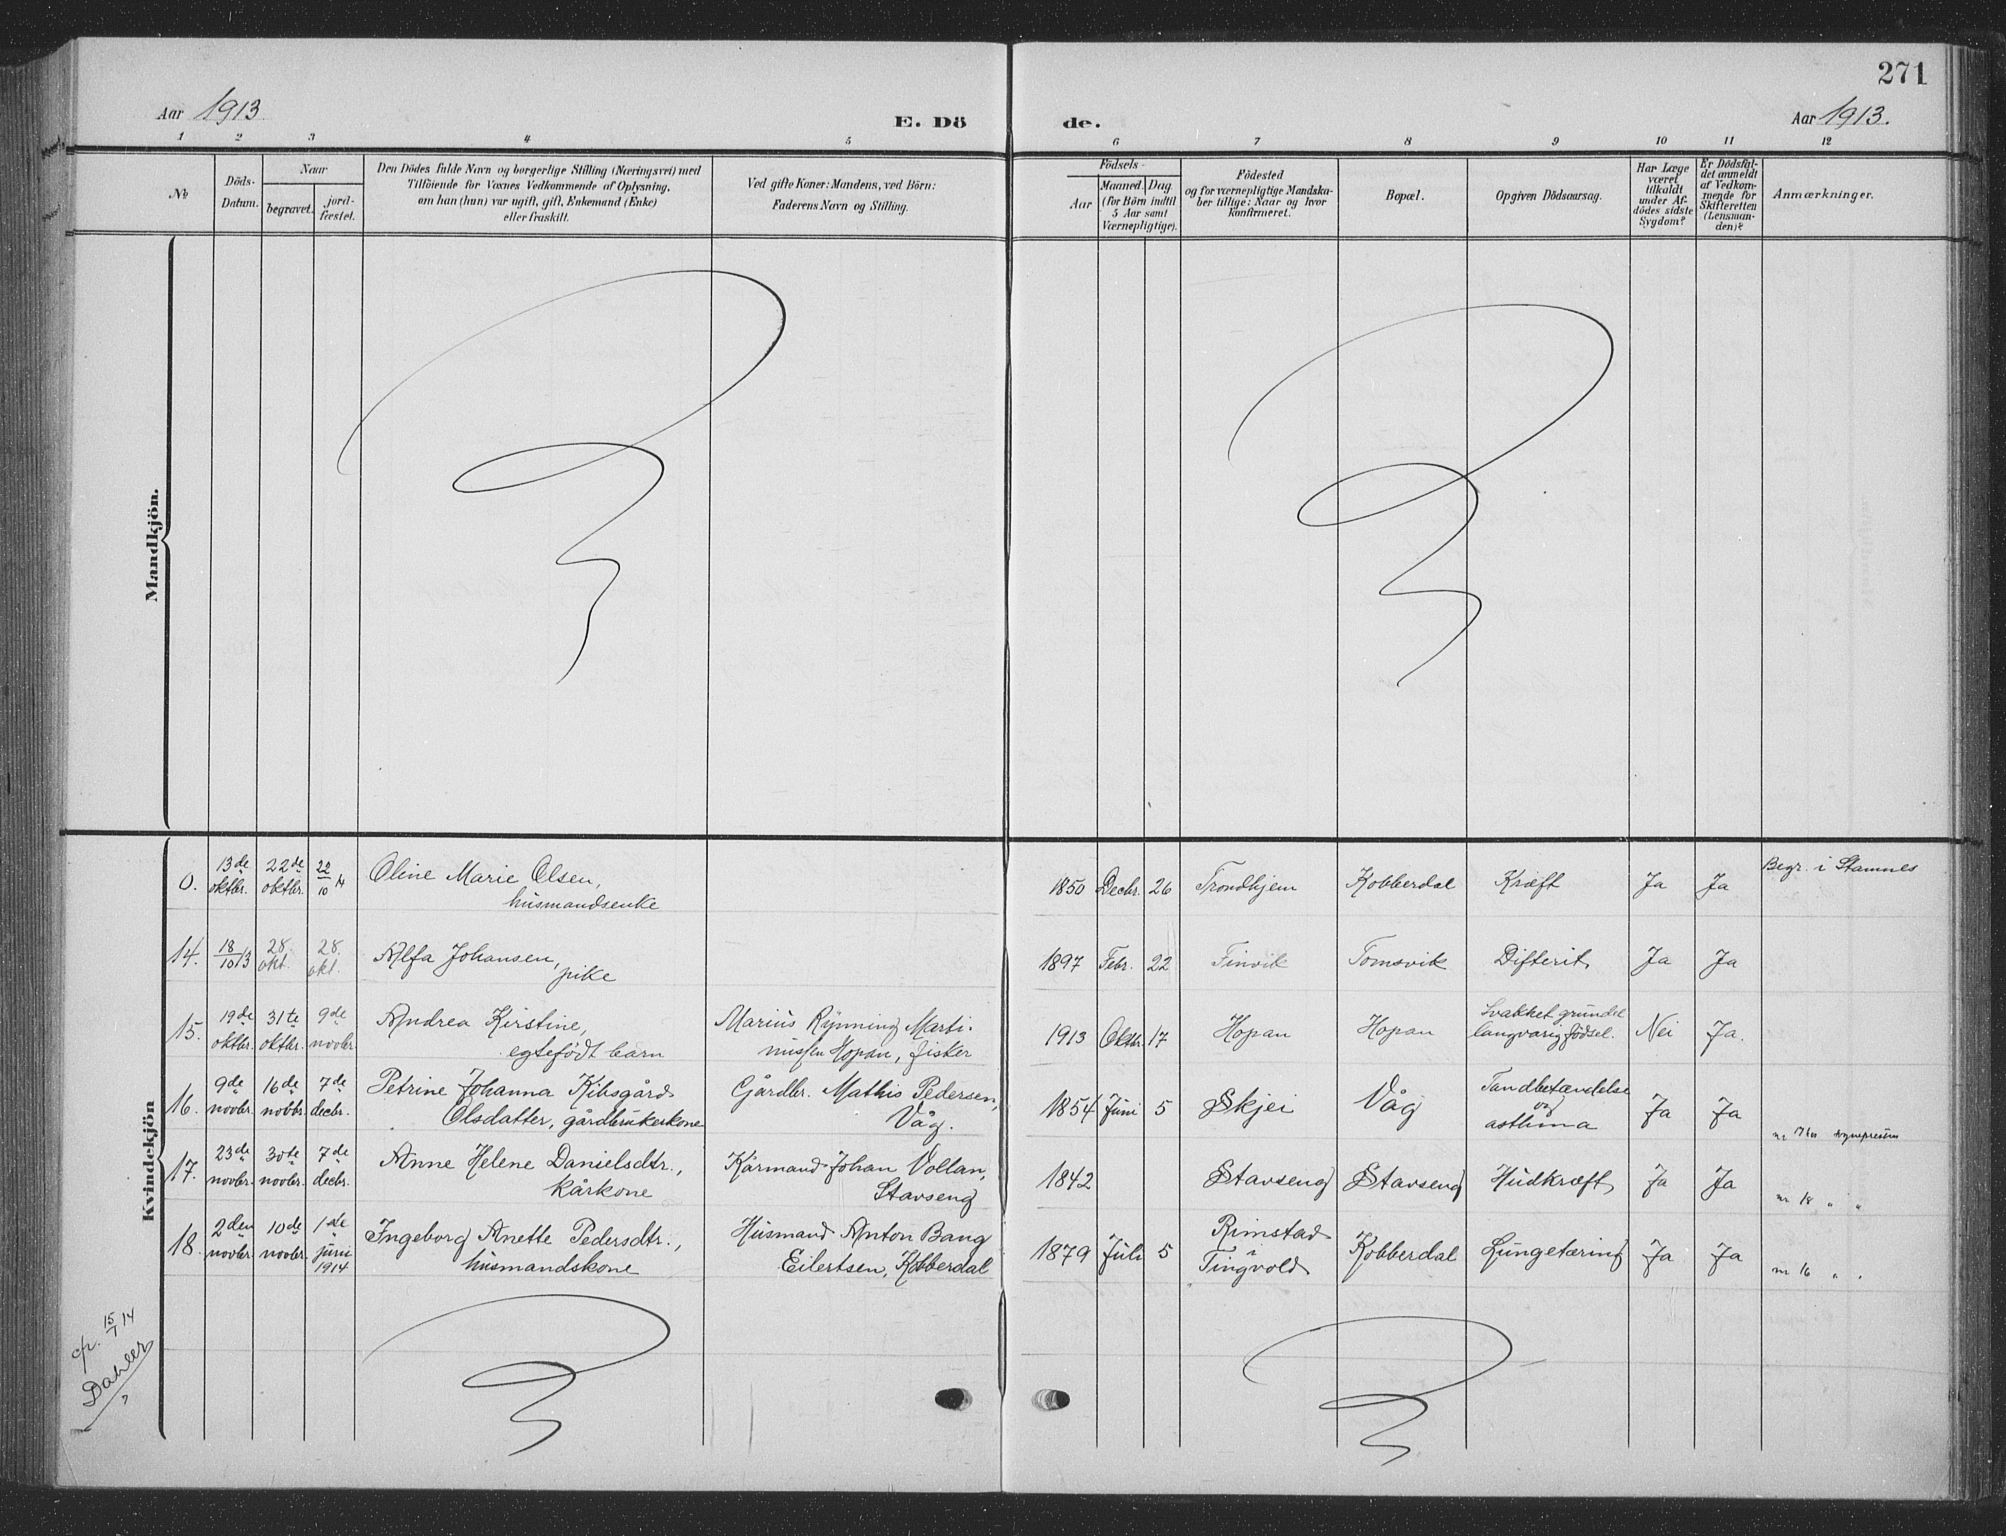 271
Aar 1913 E. Dö de. Aar 1913.
1 2 3 4 5 6 7 8 9 10 11 12
No
Döds-
Datum.
Naar
begravet.
jord-
fæstet.
Den Dödes fulde Navn og borgerlige Stilling (Næringsvei) med
Tilföiende for Voxnes Vedkommende af Oplysning,
om han (hun) var ugift, gift, Enkemand (Enke)
eller fraskilt.
Ved gifte Koner: Mandens, ved Börn:
Faderens Navn og Stilling.
Födsels-
Aar
Maaned. Dag.
(for Börn indtil
5 Aar samt
Værnepligtige).
Födested
og for værnepligtige Mandska-
ber tillige: Naar og hvor
konfirmeret.
Bopæl.
Opgiven Dödsaarsag.
Har Læge
været
tilkaldt
under Af-
dödes sidste
Sygdom?
Er Dödsfal-
det anmeldt
af Vedkom-
mende for
Skifteretten
(Lensman-
den)?
Anmærkninger.
Mandkjön.
Kvindekjön
0. 13de oktbr. 22de oktbr. 22/10 Oline Marie Olsen, husmandsenke 1850 Decbr. 26 Trondhjem Kobberdal Kræft Ja Ja Begr. i Stamnes
14. 18/10 13 28. okt. 28. okt. Alfa Johansen, pike 1897 Febr. 22 Finvik Tomsvik Difterit Ja Ja
15. 19de oktbr. 31te oktbr. 9de novbr Andrea Kirstine, egtefödt barn Marius Rynning Marti-nussen Hopan, fisker 1913 Oktbr. 17 Hopan Hopan Svakhet grundet langvarig födsel. Nei Ja.
16. 9de novbr. 16de novbr. 7de decbr. Petrine Johanna Kibsgård Olsdatter, gårdbrukerkone Gårdbr. Mathis Pedersen, Våg. 1854 Juni 5 Skjei Våg Tandbetændelse og asthma Ja Ja
17. 23de novbr. 30te novbr. 7de decbr. Anne Helene Danielsdtr., kårkone Kårmand Johan Vollan, Stavseng 1842 Stavseng Stavseng Hudkræft Ja Ja nr 18 " "
18. 2den novbr. 10de novbr. 1ste juni 1914 Ingeborg Anette Pedersdtr., husmandskone Husmand Anton Bang Eilertsen, Kobberdal 1879 Juli 5 Rimstad i Tingvold Kobberdal Lungetæring Ja Ja nr 16 " "
15/1 14
Dahler